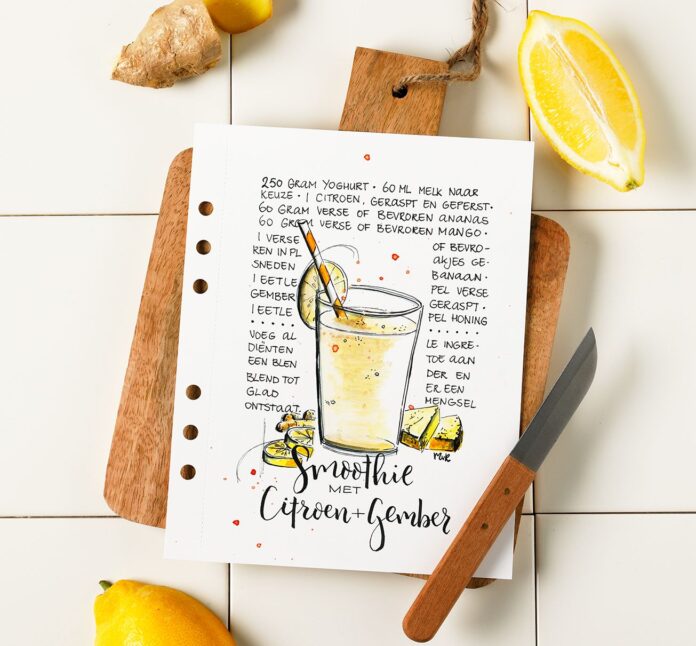 250 GRAM YOGHURT · 60 ML MELK NAAR
KEUZE · 1 CITROEN, GERASPT EN GEPERST ·
60 GRAM VERSE OF BEVROREN ANANAS ·
60 GRAM VERSE OF BEVROREN MANGO ·
1 VERSE OF BEVRO-
REN IN PL AKJES GE-
SNEDEN BANAAN ·
1 EETLE PEL VERSE
GEMBER GERASPT ·
1 EETLE PEL HONING
· · · · · · · · · ·
VOEG AL LE INGRE-
DIËNTEN TOE AAN
EEN BLEN DER EN
BLEND TOT ER EEN
GLAD MENGSEL
ONTSTAAT.
MvR
Smoothie
MET
Citroen + Gember